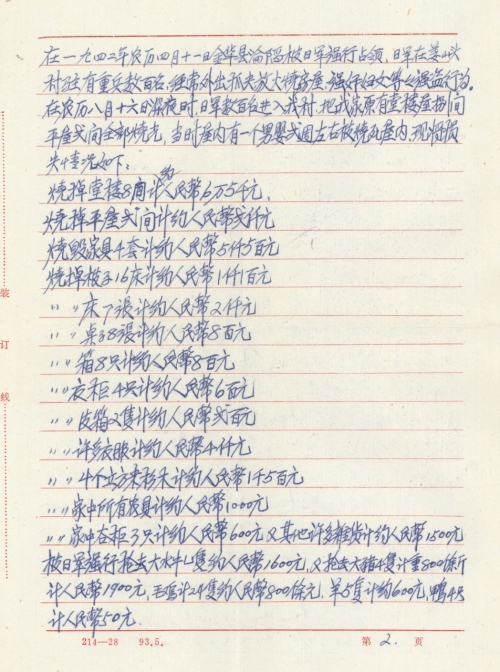 在一九四二年农历四月十一日金华县沦陷被日军强行占领，日军在姜山头
村驻有重兵数百名，经常外出抓夫放火烧房屋、强奸妇女等之强盗行为。
在农历八月十六日深夜时日军数百进入我村，把我家原有堂楼屋捌间
平屋弍间全部烧光，当时屋内有一个男婴弍周左右被烧死屋内，现将损
失情况如下：
烧掉堂楼8间计约人民幣6万5仟元，
烧掉平屋弍间计约人民幣弍仟元
烧毁家具4套计约人民幣5仟5百元
烧掉被子16床计约人民幣1仟1百元
〃〃床7張计约人民幣2仟元
〃〃桌子8張计约人民幣8百元
〃〃箱8只计约人民幣8百元
〃〃衣柜4只计约人民幣6百元
〃〃皮箱2隻计约人民幣弍百元
〃〃许多衣服计约人民幣4仟元
〃〃4个立方米杉木计约人民幣1仟5百元
〃〃家中所有农具计约人民幣1000元
〃〃家中谷柜3只计约人民幣600元又其他许多雜貨计约人民幣1500元
被日軍强行抢去大水牛1隻约人民幣1600元，又抢去大猪4隻计重800余斤
计人民幣1900元，毛鸡计24隻约人民幣800余元，羊5隻计约600元，鴨4只
计人民幣50元.
装
订
线
214—28 93.5.
第 2. 页